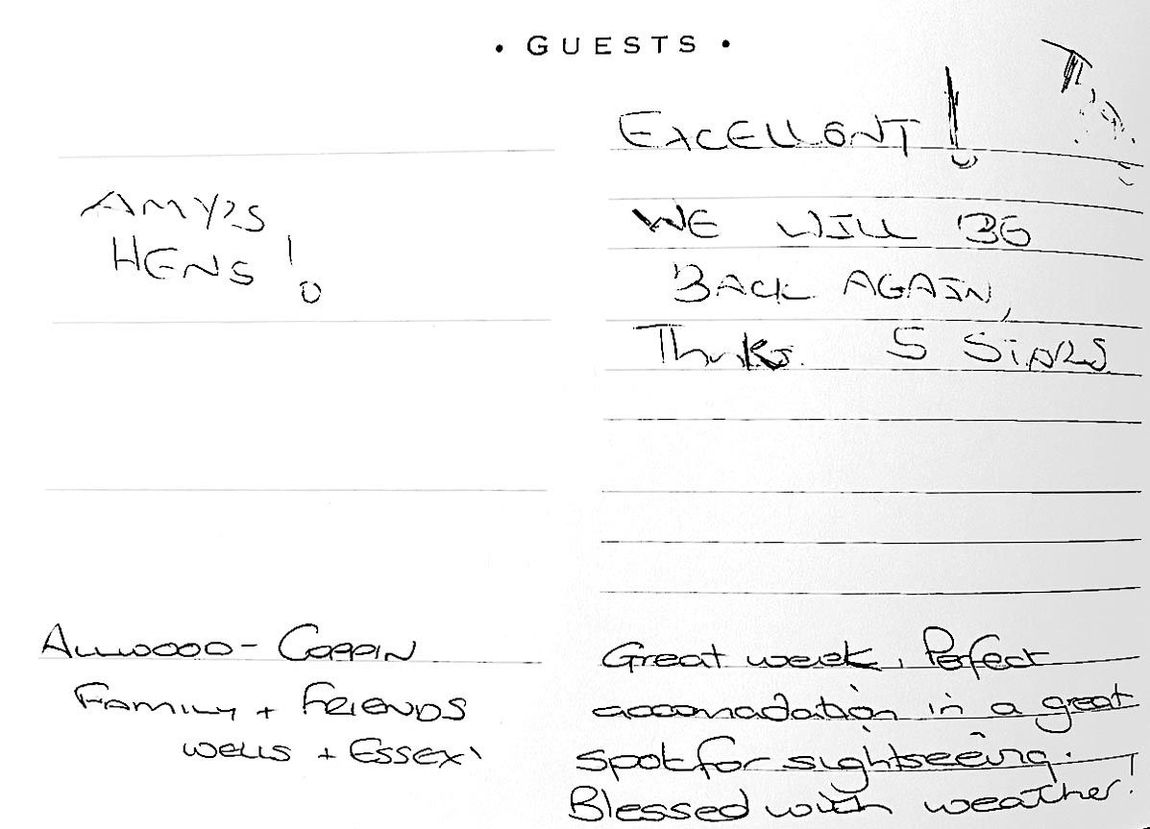 • GUESTS •
EXCELLENT !
AMY'S
HENS !
WE WILL BE
BACK AGAIN,
Thnks. 5 STARS
ALLWOOD - COPPIN
FAMILY + FRIENDS
WELLS + ESSEX
Great week, Perfect
accomadation in a great
spot for sightseeing.
Blessed with weather!